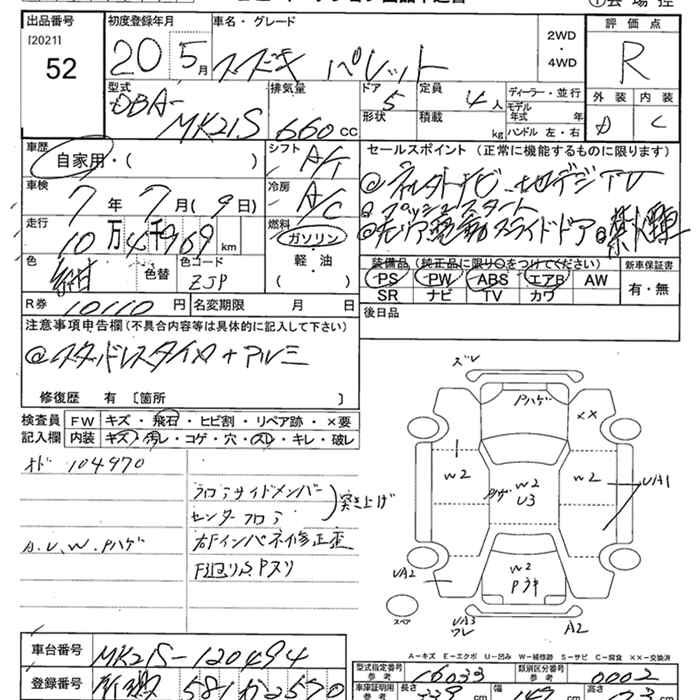 出品番号
[2021]
52
初度登録年月
20 5月
車名・グレード
スズキ パレット
2WD
・
4WD
評価点
R
型式
DBA-
MK21S
排気量
660 cc
ドア
5
形状
定員
4人
積載
kg
ディーラー・並行
モデル
年式 年
ハンドル 左・右
外装 内装
D C
車歴
自家用・( )
シフト
A/T
車検
7年 7月(9日)
冷房
A/C
走行
10万4千969km
燃料
ガソリン
軽・油
( )
色
紺
色替
色コード
ZJP
R券 10110円
名変期限 月 日
セールスポイント (正常に機能するものに限ります)
プッシュスタート
装備品 (純正品に限り○をつけてください)
PS PW ABS エアB AW
SR ナビ TV カワ
新車保証書
有・無
後日品
注意事項申告欄(不具合内容等は具体的に記入して下さい)
@スタッドレスタイヤ+アルミ
修復歴 有 [箇所 ]
検査員
記入欄
FW キズ・飛石・ヒビ割・リペア跡・×要
内装 キズ・汚レ・コゲ・穴・スレ・キレ・破レ
オド 104970
フロアサイドメンバー
センターフロア
突き上げ
A.U.W.Pハゲ
右FインパネイF修正歪
F廻りS.Pズリ
ズレ
Pハゲ
××
W2
W2
U3
W2
UA1
UA2
W2
Pウキ
スペア
UA3
ワレ
A2
A-キズ E-エクボ U-凹み W-補修跡 S-サビ C-腐食 ××-交換済
車台番号 MK21S-120494
型式指定番号
参考
16033
類別区分番号
参考
0002
登録番号
車庫証明用
参考
長さ
幅
高さ